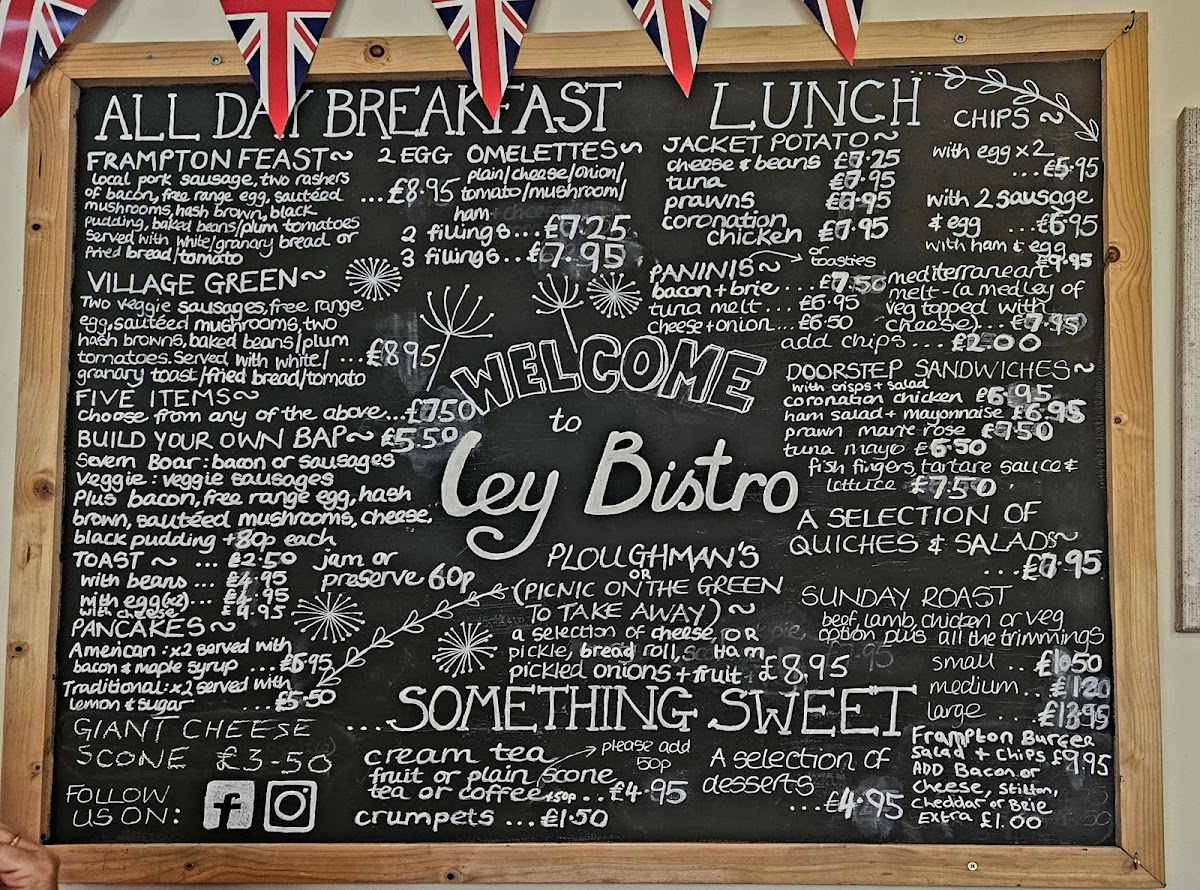 ALL DAY BREAKFAST
FRAMPTON FEAST~
local pork sausage, two rashers
of bacon, free range egg, sautéed
mushrooms, hash brown, black
pudding, baked beans/plum tomatoes
Served with white/granary bread or
fried bread/tomato
...£8.95
VILLAGE GREEN~
Two veggie sausages, free range
egg, sautéed mushrooms, two
hash browns, baked beans/plum
tomatoes. Served with white/ ... £8.95
granary toast/fried bread/tomato
FIVE ITEMS~
choose from any of the above...£7.50
BUILD YOUR OWN BAP~ £5.50
Severn Boar: bacon or sausages
Veggie: veggie sausages
Plus bacon, free range egg, hash
brown, sautéed mushrooms, cheese,
black pudding +80p each
TOAST ~ ... £2.50 jam or
preserve 60p
with beans ... £4.95
with egg(x2)... £4.95
with cheese £4.95
PANCAKES~
American: x2 served with
bacon & maple syrup ... £6.95
Traditional: x2 served with
lemon & sugar ... £5.50
GIANT CHEESE
SCONE £3-50
FOLLOW
US ON: f
2 EGG OMELETTES~
plain/cheese/onion/
tomato/mushroom/
ham
2 fillings...£7.25
3 fillings...£7.95
WELCOME
to
ley Bistro
PLOUGHMAN'S
OR
(PICNIC ON THE GREEN
TO TAKE AWAY)~
a selection of cheese, OR
pickle, bread roll, Ham
pickled onions + fruit £8.95
...SOMETHING SWEET
cream tea please add
50p
fruit or plain scone
tea or coffee +50p ..£4.95
crumpets ...£1.50
A selection of
desserts
...£4.95
LUNCH
JACKET POTATO~
cheese & beans £7.25
tuna £7.95
prawns £8.95
coronation
chicken £7.95
PANINIS~ or toasties
bacon + brie .... £7.50
tuna melt... £6.95
cheese + onion... £6.50
mediterranean
melt-(a medley of
veg topped with
cheese)...£7.95
add chips ... £2.00
CHIPS ~
with egg x2
...£5.95
with 2 sausage
& egg ...£6.95
with ham & egg
£9.95
DOORSTEP SANDWICHES~
with crisps + salad
coronation chicken £6.95
ham salad + mayonnaise £6.95
prawn marie rose £7.50
tuna mayo £6.50
fish fingers, tartare sauce &
lettuce £7.50
A SELECTION OF
QUICHES & SALADS~
...£7.95
SUNDAY ROAST
beef, lamb, chicken or veg
option plus all the trimmings
small .. £10.50
medium .. £120
large ... £13.95
Frampton Burger
Salad + Chips £9.95
ADD Bacon or
Cheese, Stilton,
Cheddar or Brie
Extra £1.00